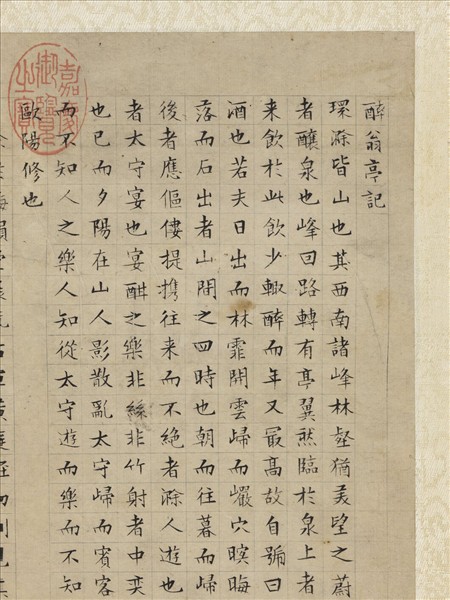 醉翁亭記
環滁皆山也其西南諸峰林壑猶羙望之蔚
者釀泉也峰回路轉有亭翼然臨於泉上者
来飲於此飲少輒醉而年又最高故自號曰
酒也若夫日出而林霏開雲歸而巖穴暝晦
落而石出者山間之四時也朝而往暮而歸
後者應傴僂提携往来而不絕者滁人遊也
者太守宴也宴酣之樂非絲非竹射者中奕
也已而夕陽在山人影散亂太守歸而賓客
而不知人之樂人知從太守遊而樂而不知
歐陽修也
嘉慶御覽之寶